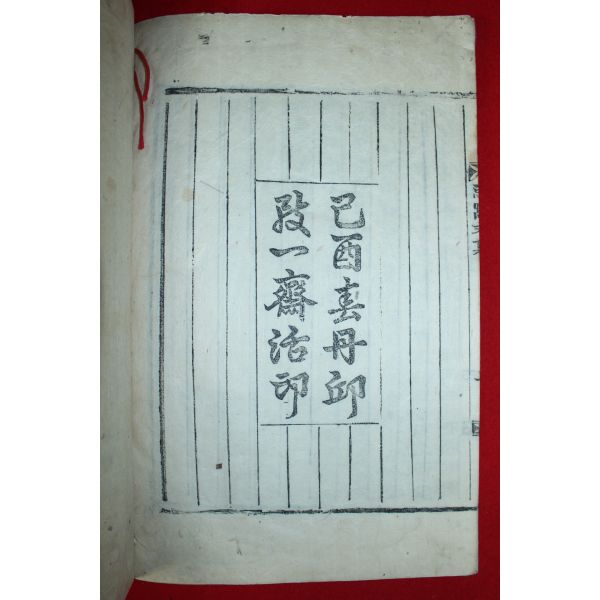 己酉春丹邱
敬一齋活印